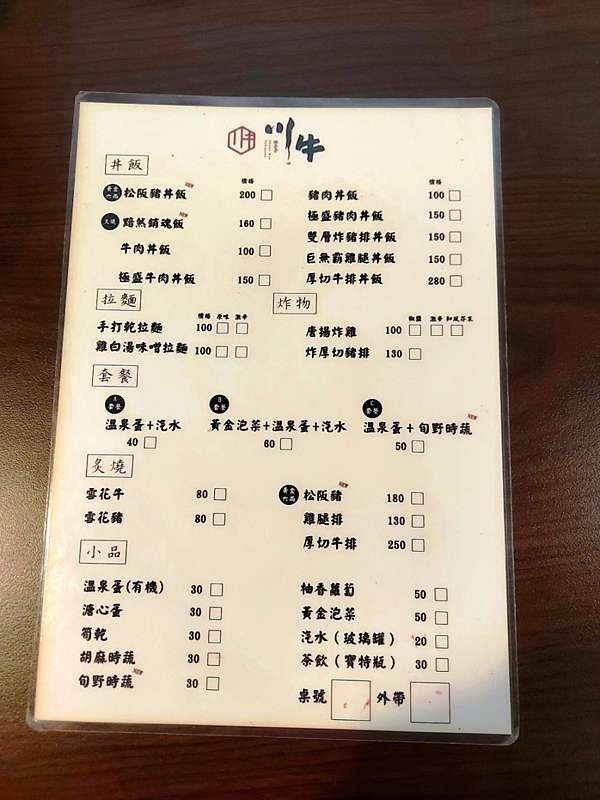 川牛
丼飯
價格
松阪豬丼飯 NEW 200
叉燒 黯然銷魂飯 NEW 160
牛肉丼飯 100
極盛牛肉丼飯 150
價格
豬肉丼飯 100
極盛豬肉丼飯 150
雙層炸豬排丼飯 150
巨無霸雞腿丼飯 150
厚切牛排丼飯 280
拉麵
價格 原味 激辛
手打乾拉麵 100
雞白湯味噌拉麵 100
炸物
椒鹽 激辛 和風芥茉
唐揚炸雞 100
炸厚切豬排 130
套餐
A 套餐
溫泉蛋+汽水
40
B 套餐
黃金泡菜+溫泉蛋+汽水
60
C 套餐
溫泉蛋+旬野時蔬 NEW
50
炙燒
雪花牛 80
雪花豬 80
松阪豬 NEW 180
雞腿排 130
厚切牛排 250
小品
溫泉蛋(有機) 30
溏心蛋 30
筍乾 30
胡麻時蔬 30
旬野時蔬 NEW 30
柚香蘿蔔 50
黃金泡菜 50
汽水(玻璃罐) 20
茶飲(寶特瓶) 30
桌號 外帶